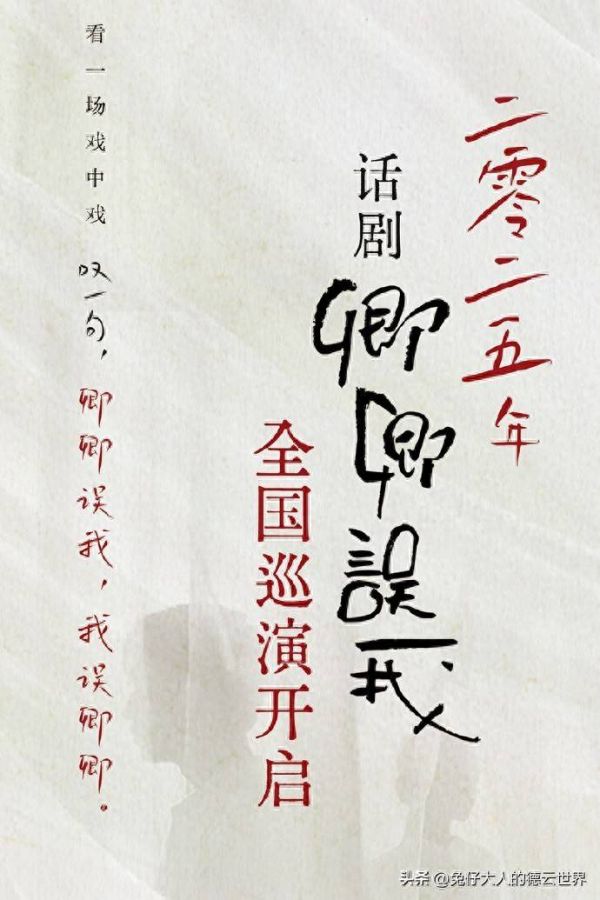 二零二五年
话剧
卿卿誤我
全国巡演开启
看一场戏中戏
叹一句，卿卿误我，我误卿卿。
头条 @兔仔大人的德云世界